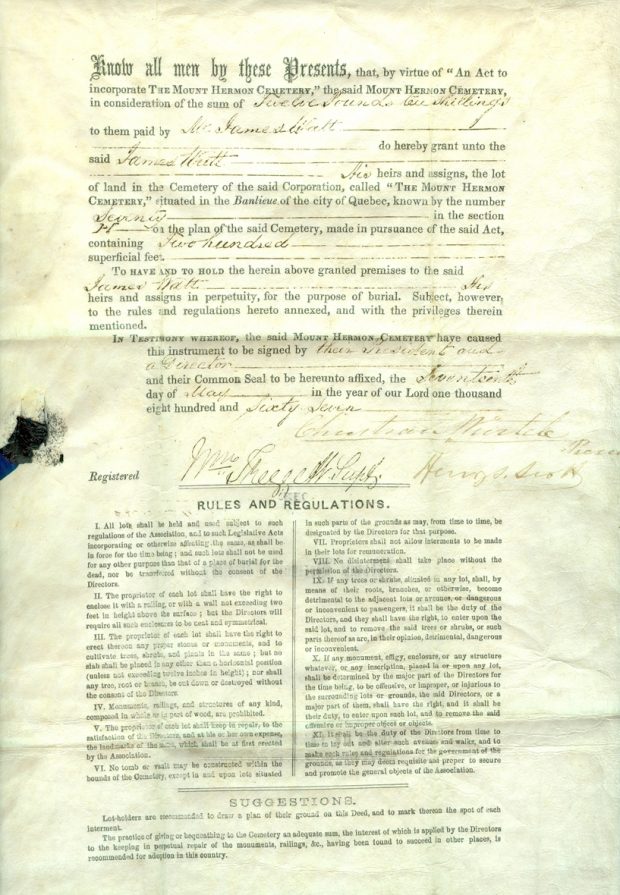 Know all men by these Presents, that, by virtue of "An Act to
incorporate THE MOUNT HERMON CEMETERY," the said MOUNT HERMON CEMETERY,
in consideration of the sum of Twelve Pounds Ten Shillings
to them paid by Mr James Watt
do hereby grant unto the
said James Watt
His heirs and assigns, the lot
of land in the Cemetery of the said Corporation, called "THE MOUNT HERMON
CEMETERY," situated in the Banlieue of the city of Quebec, known by the number
in the section
on the plan of the said Cemetery, made in pursuance of the said Act,
containing Two hundred
superficial feet.
TO HAVE AND TO HOLD the herein above granted premises to the said
James Watt His
heirs and assigns in perpetuity, for the purpose of burial. Subject, however,
to the rules and regulations hereto annexed, and with the privileges therein
mentioned.
IN TESTIMONY WHEREOF, the said MOUNT HERMON CEMETERY have caused
this instrument to be signed by their President and
a Director
and their Common Seal to be hereunto affixed, the Seventeenth
day of May in the year of our Lord one thousand
eight hundred and Sixty Seven
Christian Wurtele
Registered Wm Treggett Supt. Henry S. Scott
RULES AND REGULATIONS.
I. All lots shall be held and used subject to such
regulations of the Association, and to such Legislative Acts
incorporating or otherwise affecting the same, as shall be
in force for the time being; and such lots shall not be used
for any other purpose than that of a place of burial for the
dead, nor be transferred without the consent of the
Directors.
II. The proprietor of each lot shall have the right to
enclose it with a railing, or with a wall not exceeding two
feet in height above the surface; but the Directors will
require all such enclosures to be neat and symmetrical.
III. The proprietor of each lot shall have the right to
erect thereon any proper stones or monuments, and to
cultivate trees, shrubs, and plants in the same; but no
slab shall be placed in any other than a horizontal position
(unless not exceeding twelve inches in height); nor shall
any tree, root or branch, be cut down or destroyed without
the consent of the Directors.
IV. Monuments, railings, and structures of any kind,
composed in whole or in part of wood, are prohibited.
V. The proprietor of each lot shall keep in repair, to the
satisfaction of the Directors, and at his or her own expense,
the landmarks of the same, which shall be at first erected
by the Association.
VI. No tomb or vault may be constructed within the
bounds of the Cemetery, except in and upon lots situated
in such parts of the grounds as may, from time to time, be
designated by the Directors for that purpose.
VII. Proprietors shall not allow interments to be made
in their lots for remuneration.
VIII. No disinterment shall take place without the
permission of the Directors.
IX. If any trees or shrubs, situated in any lot, shall, by
means of their roots, branches, or otherwise, become
detrimental to the adjacent lots or avenues, or dangerous
or inconvenient to passengers, it shall be the duty of the
Directors, and they shall have the right, to enter upon the
said lot, and to remove the said trees or shrubs, or such
parts thereof as are, in their opinion, detrimental, dangerous
or inconvenient.
X. If any monument, effigy, enclosure, or any structure
whatever, or any inscription, placed in or upon any lot,
shall be determined by the major part of the Directors for
the time being, to be offensive, or improper, or injurious to
the surrounding lots or grounds, the said Directors, or a
major part of them, shall have the right, and it shall be
their duty, to enter upon such lot, and to remove the said
offensive or improper object or objects.
XI. It shall be the duty of the Directors from time to
time to lay out and alter such avenues and walks, and to
make such rules and regulations for the government of the
grounds, as they may deem requisite and proper to secure
and promote the general objects of the Association.
SUGGESTIONS.
Lot-holders are recommended to draw a plan of their ground on this Deed, and to mark thereon the spot of each
interment.
The practice of giving or bequeathing to the Cemetery an adequate sum, the interest of which is applied by the Directors
to the keeping in perpetual repair of the monuments, railings, &c., having been found to succeed in other places, is
recommended for adoption in this country.